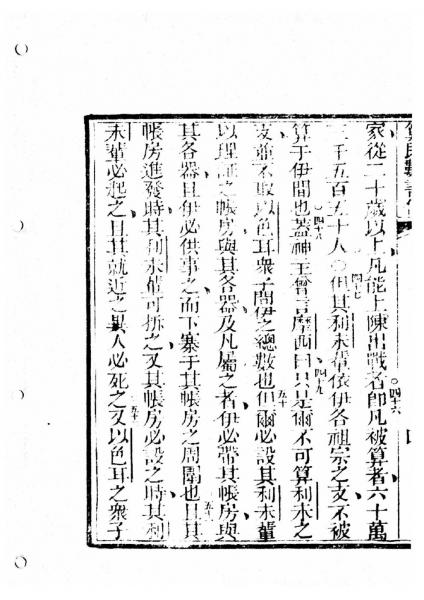 家從二十歲以上凡能上陳出戰者四十六即凡被算者六十萬
三千五百五十人○四十七但其利未輩依伊各祖宗之支不被
算于伊間也四十八蓋神主曾言摩西曰四十九只是爾不可算利未之
支並不取以色耳衆子間伊之總數也五十但爾必設其利未輩
以理證之帳房與其各器及凡屬之者伊必帶其帳房與
其各器且伊必供事之而下寨于其帳房之周圍也五十一且其
帳房進發時其利未輩可拆之又其帳房必設之時其利
未輩必起之且其就近之異人必死之五十二又以色耳之衆子